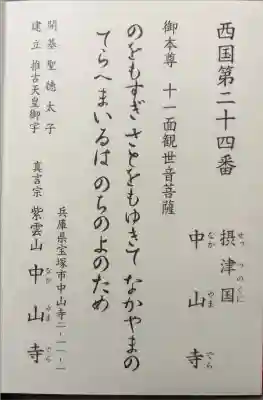 西国第二十四番
摂津国 中山寺
せっつのくに なかやまでら
御本尊 十一面観世音菩薩
のをもすぎ さとをもゆきて なかやまの
てらへまいるは のちのよのため
開基 聖徳太子
建立 推古天皇御宇
兵庫県宝塚市中山寺二-一一-一
真言宗 紫雲山 中山寺
なかやまでら